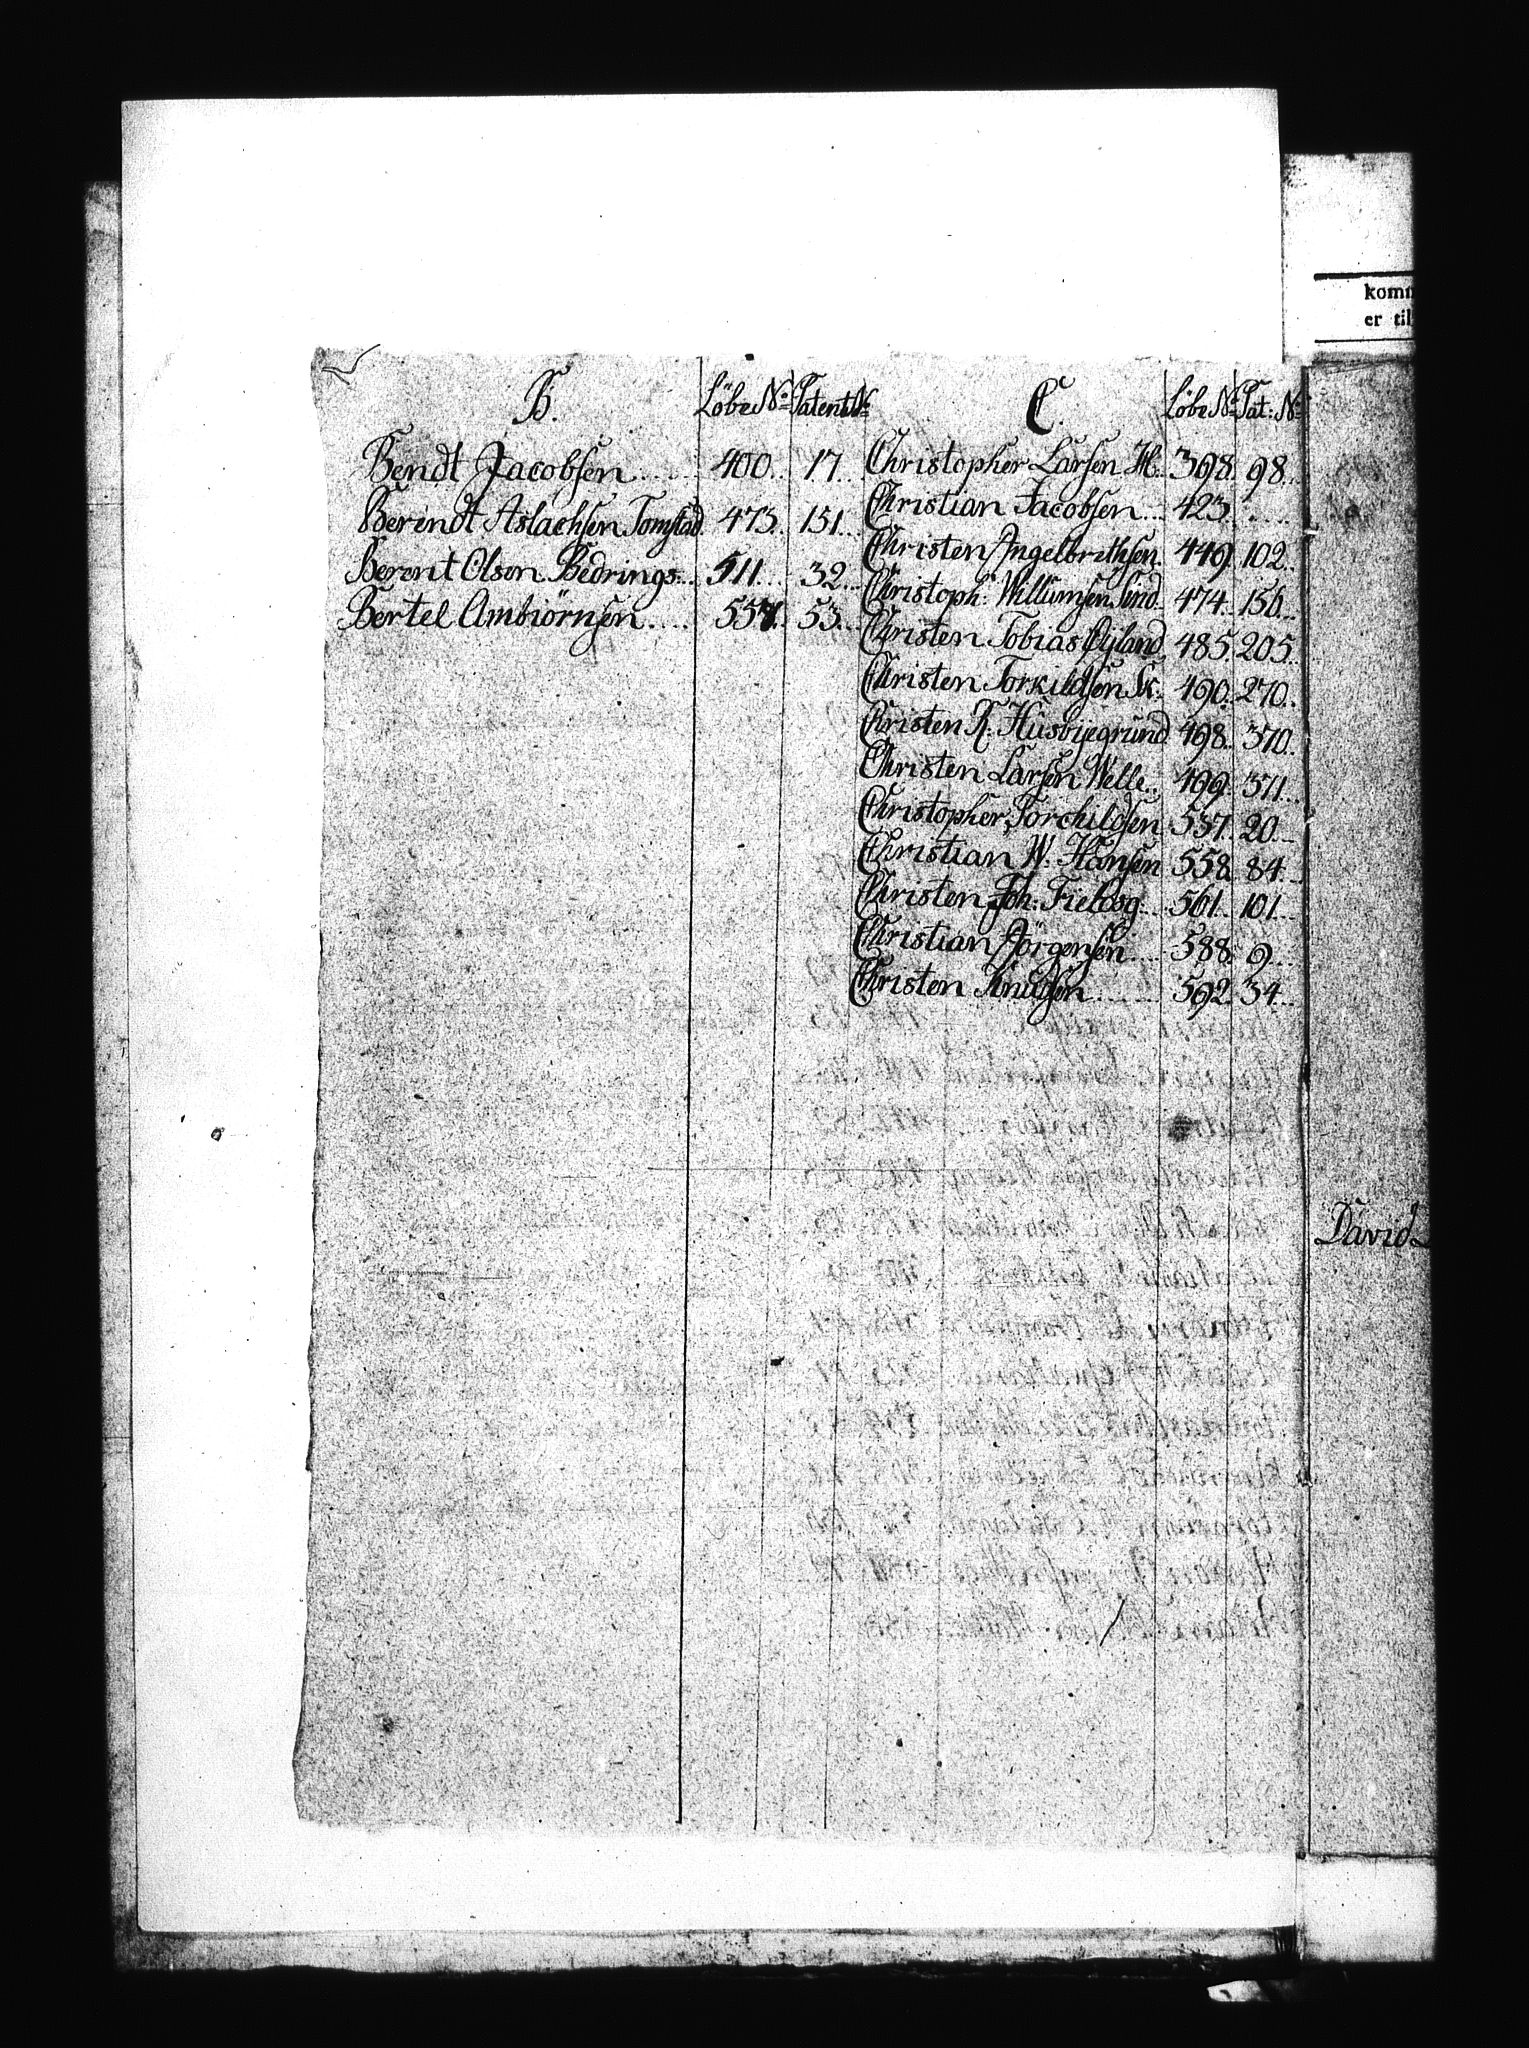 B. Löbe No Patent No
Bendt Jacobsen..... 400. 17...
Berindt Aslachsen Tomstad. 473. 151...
Berent Olsen Bedrings... 511... 32...
Bertel Ambiörnsen..... 557. 53...
C. Löbe No Pat: No
Christopher Larsen H. 398. 98...
Christian Jacobsen... 423. .....
Christen Ingelbrethsen. 449. 102..
Christoph: Willumsen Lind. 474. 156...
Christen Tobias Øyland 485. 205..
Christen Torkildsen Sk. 490. 270..
Christen K. Husbyegrund 498. 370..
Christen Larsen Welle.. 499. 371...
Christopher Torchildsen 537. 20...
Christian W. Hansen 558. 84...
Christen Joh: 561. 101...
Christian Jörgensen.... 588. 9...
Christen Knudsen........ 592. 34...
komm
er til
David